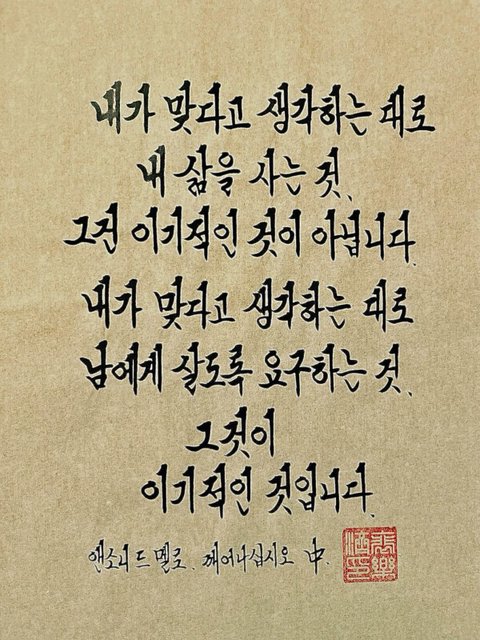 내가 맞다고 생각하는 대로
내 삶을 사는 것,
그건 이기적인 것이 아닙니다.
내가 맞다고 생각하는 대로
남에게 살도록 요구하는 것,
그것이
이기적인 것입니다.
앤소니 드 멜로, 깨어나십시오 中.